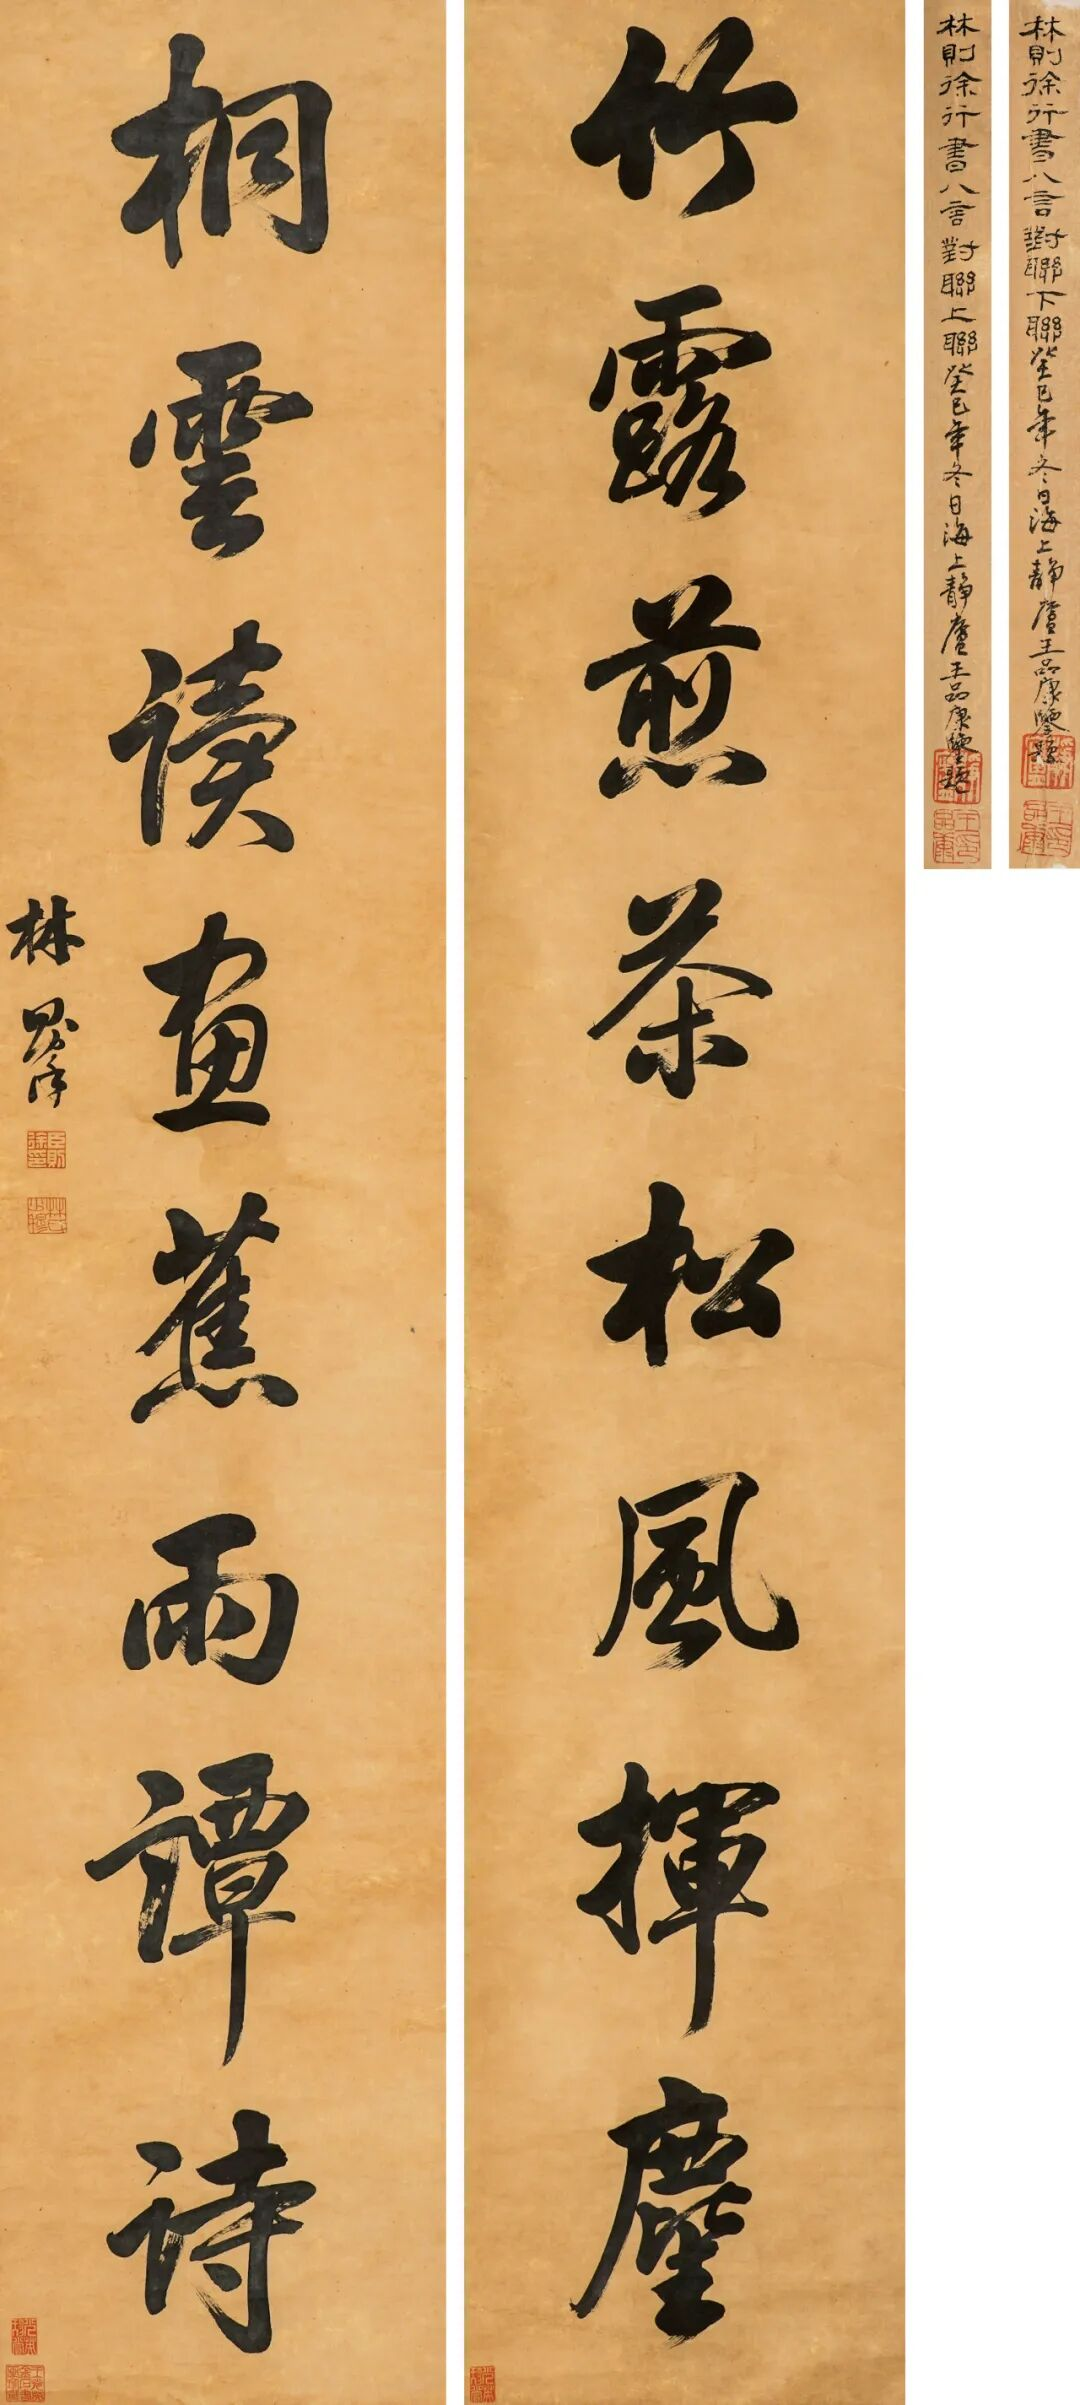 林則徐行書八言對聯下聯癸巳年冬日海上靜廬王品康鑒題
林則徐行書八言對聯上聯癸巳年冬日海上靜廬王品康鑒題
竹露煎茶松風揮麈
桐雲讀畫蕉雨譚詩
林則徐
臣則徐印